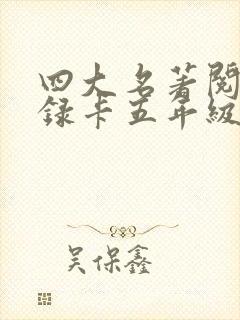 四大名著阅
录卡五年级
吴保鑫